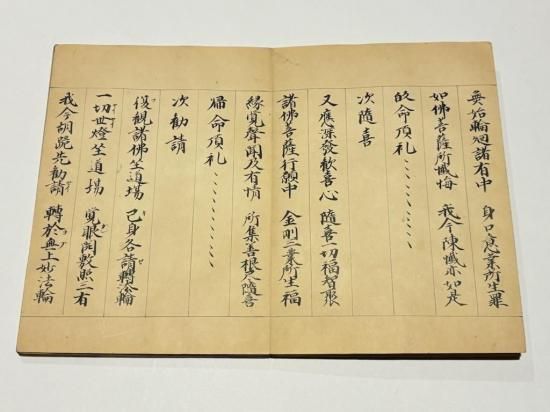 無始輪廻諸有中 身口意業所生罪
如佛菩薩所懺悔 我今陳懺亦如是
皈命頂礼、、、、、、、、
次隨喜
又應深發歓喜心 隨喜一切福智聚
諸佛菩薩行願中 金剛三業所生福
縁覚聲聞及有情 所集善根尽隨喜
歸命頂礼、、、、、、、、、
次勧請
復観諸佛坐道場 己身各請轉法輪
一切世燈坐道場 覚眼開敷照三有
我今胡跪先勧請 轉於無上妙法輪